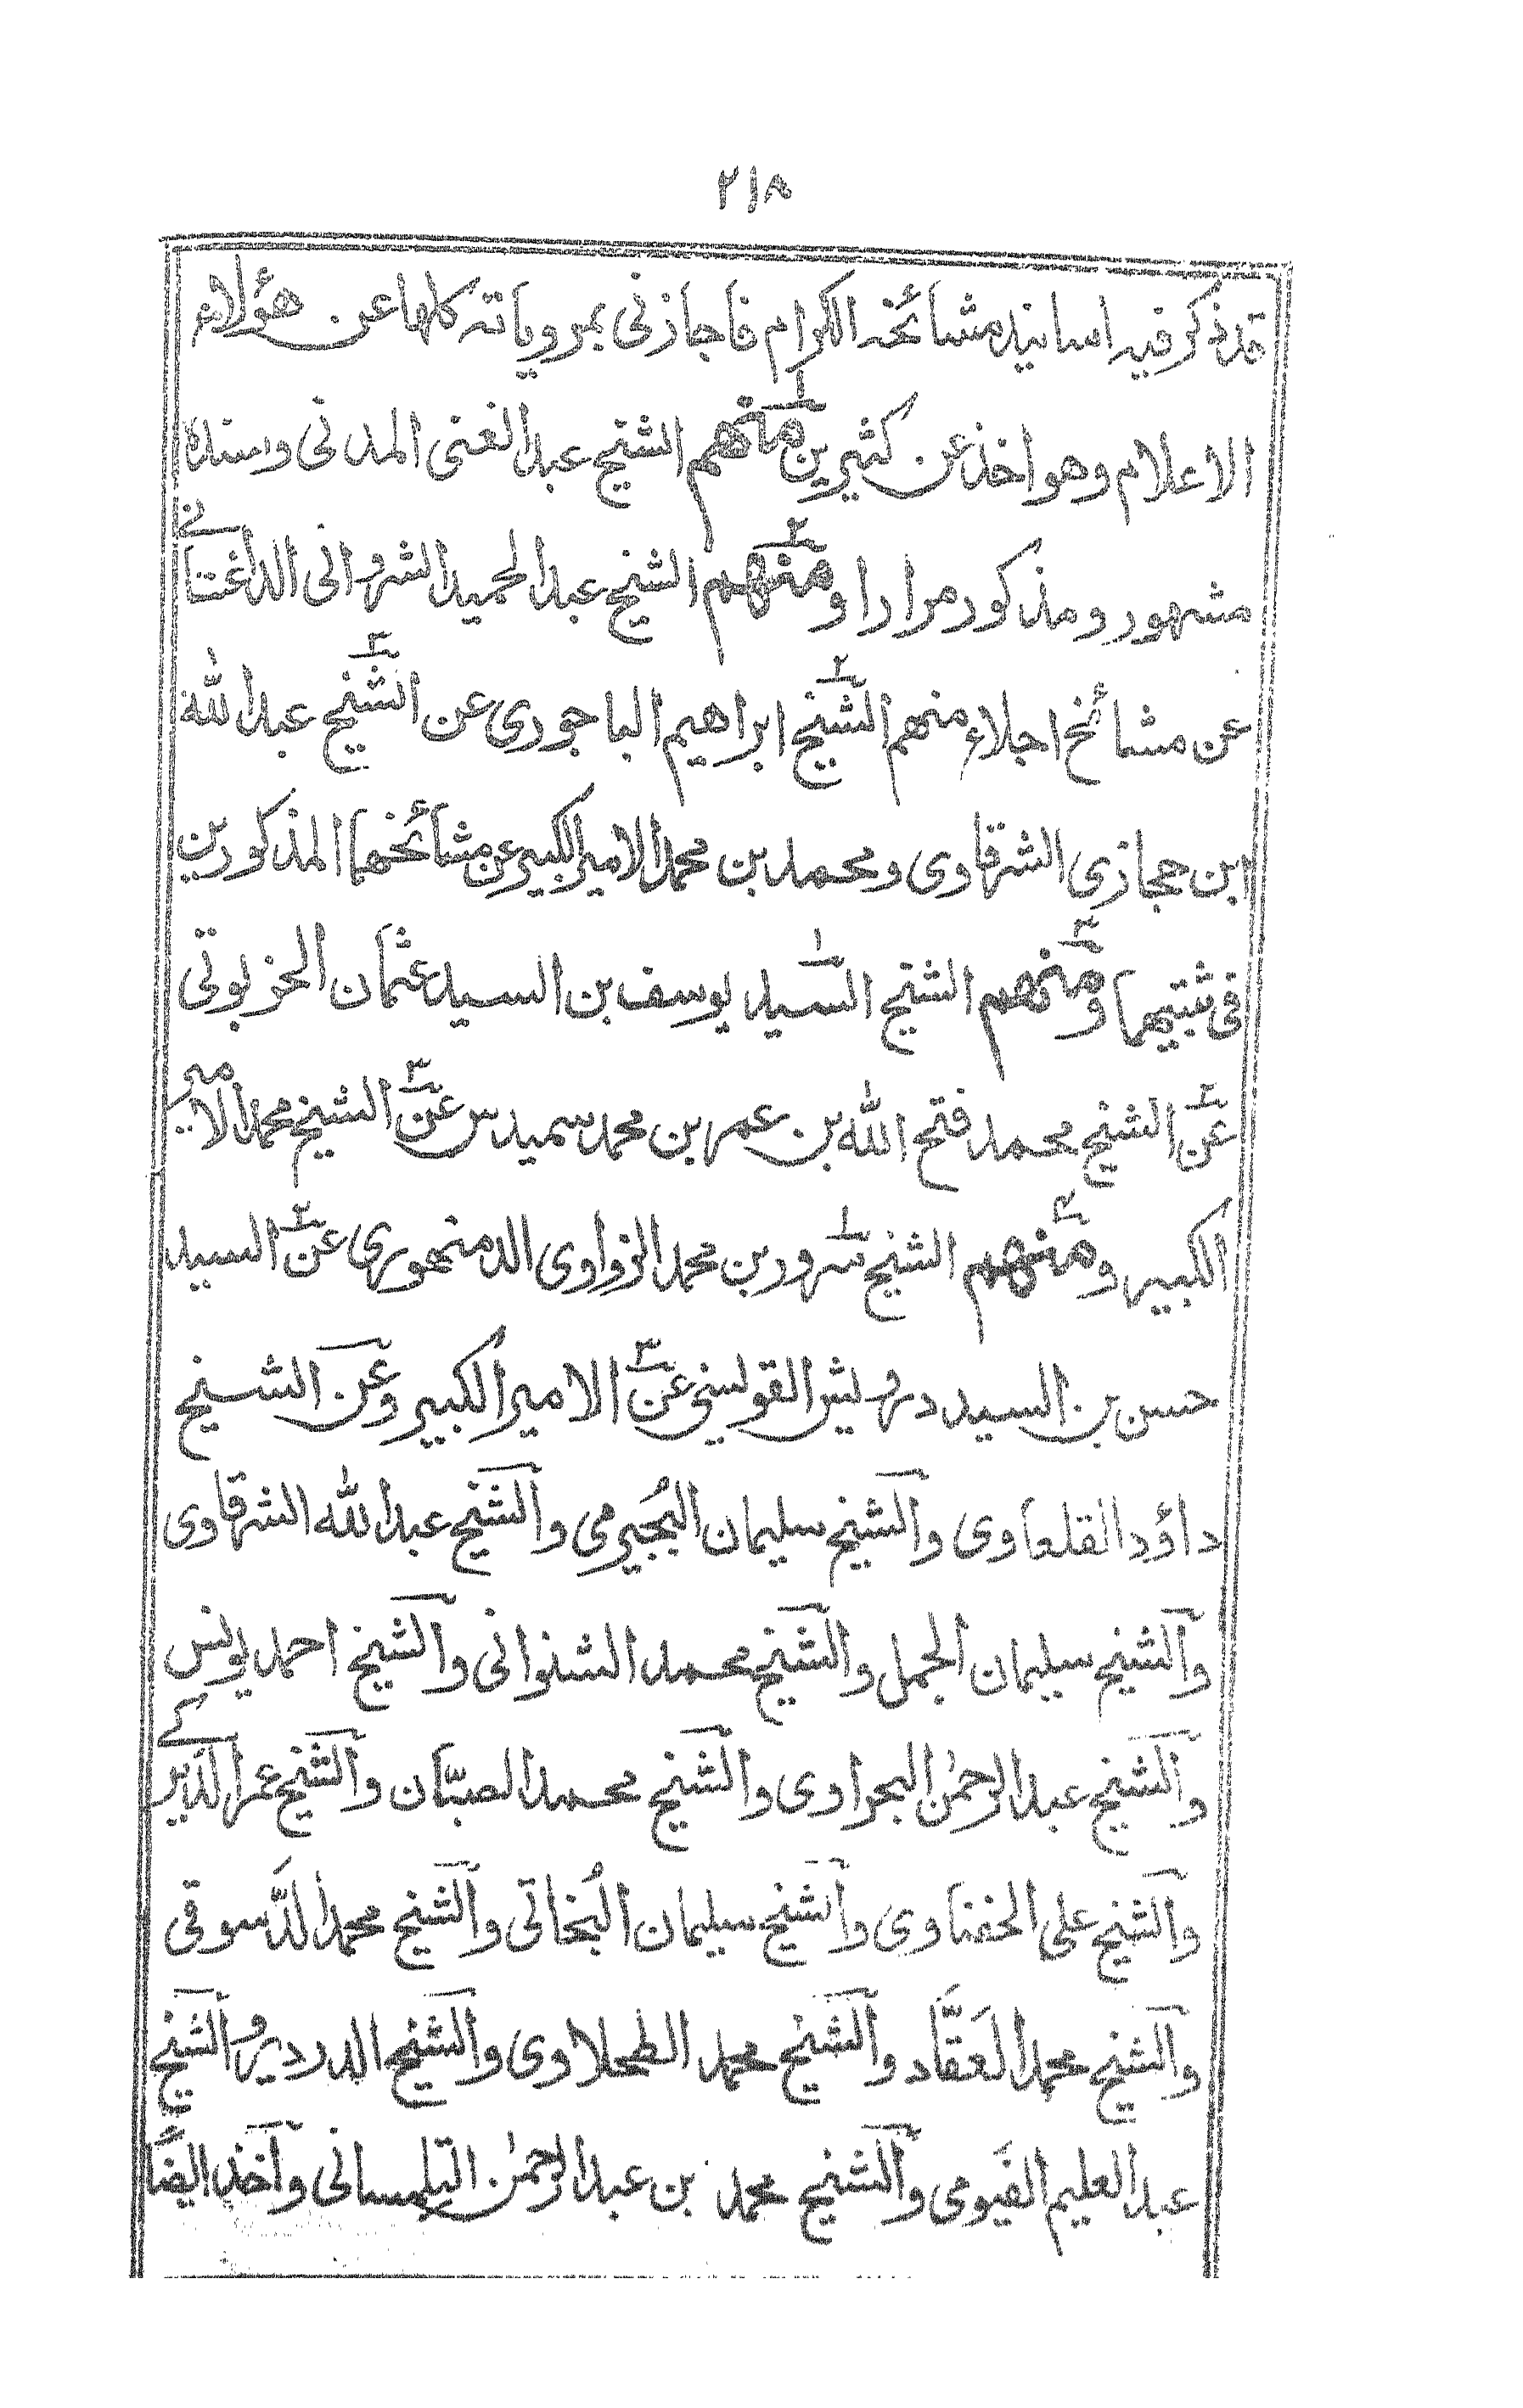 ٢١٨
قد ذكر فيه اسانيد مشائخه الكرام فاجازنى بمروياته كلها عن هؤلاء
الاعلام وهو اخذ عن كثيرين منهم الشيخ عبد الغنى المدنى وسنده
مشهور ومذكور مرارا ومنهم الشيخ عبد الحميد الشروانى الداغستانى
عن مشائخ اجلاء منهم الشيخ ابراهيم الباجورى عن الشيخ عبد الله
ابن حجازى الشرقاوى ومحمد بن محمد الامير الكبير عن مشائخهما المذكورين
فى ثبتيهما ومنهم الشيخ السيد يوسف بن السيد عثمان الخربوتى
عن الشيخ محمد فتح الله بن عمر بن محمد سميدس عن الشيخ محمد الامير
الكبير ومنهم الشيخ سرور بن محمد الزواوى الدمنهورى عن السيد
حسن بن السيد درويش القويسنى عن الامير الكبير وعن الشيخ
داؤد القلعاوى والشيخ سليمان البُجيرمى والشيخ عبد الله الشرقاوى
والشيخ سليمان الجمل والشيخ محمد الشنوانى والشيخ احمد يونس
والشيخ عبد الرحمٰن البحراوى والشيخ محمد الصبّان والشيخ عمر الديركے
والشيخ على الحفناوى والشيخ سليمان البُخاتى والشيخ محمد الدَّسوقى
والشيخ محمد العَقَّاد والشيخ محمد الطحلاوى والشيخ الدردير والشيخ
عبد العليم الفَيومى والشيخ محمد بن عبد الرحمٰن التلمسانى وآخذ ايضًا